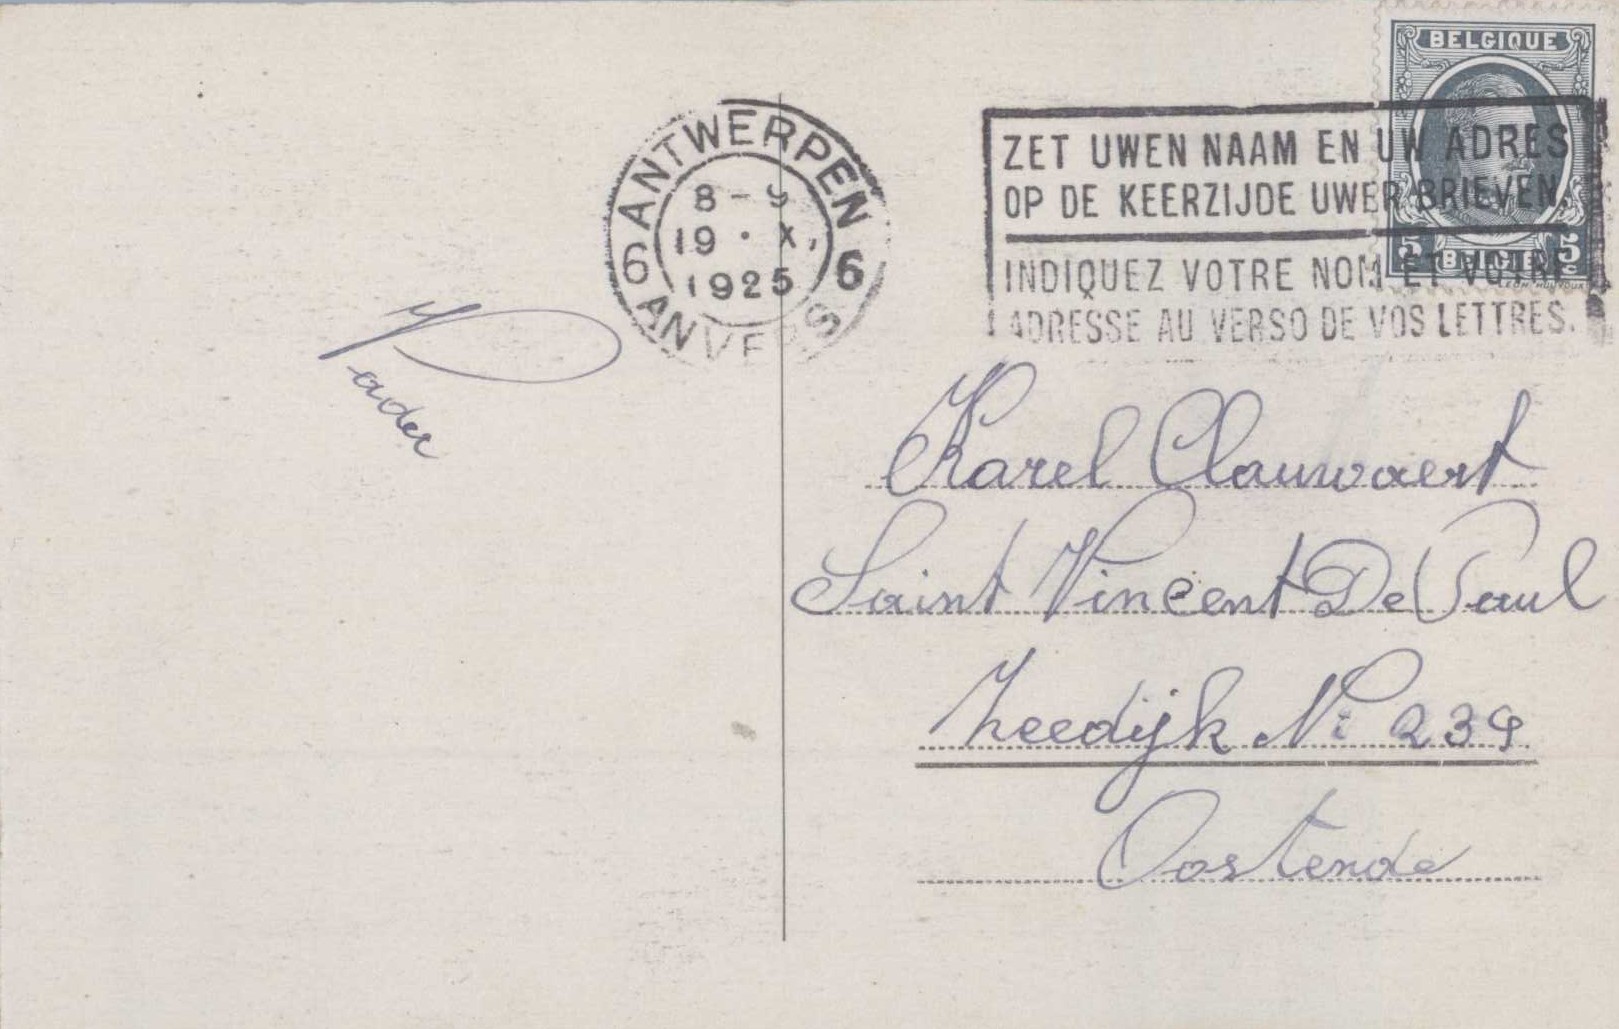 BELGIQUE
ANTWERPEN
8-9
19 · X
1925
6 6
ANVERS
ZET UWEN NAAM EN UW ADRES
OP DE KEERZIJDE UWER BRIEVEN.
INDIQUEZ VOTRE NOM ET VOTRE
ADRESSE AU VERSO DE VOS LETTRES.
5 5
BELGIE
Vader
Karel Clauwaert
Saint Vincent De Paul
Zeedijk Nr 239
Oostende